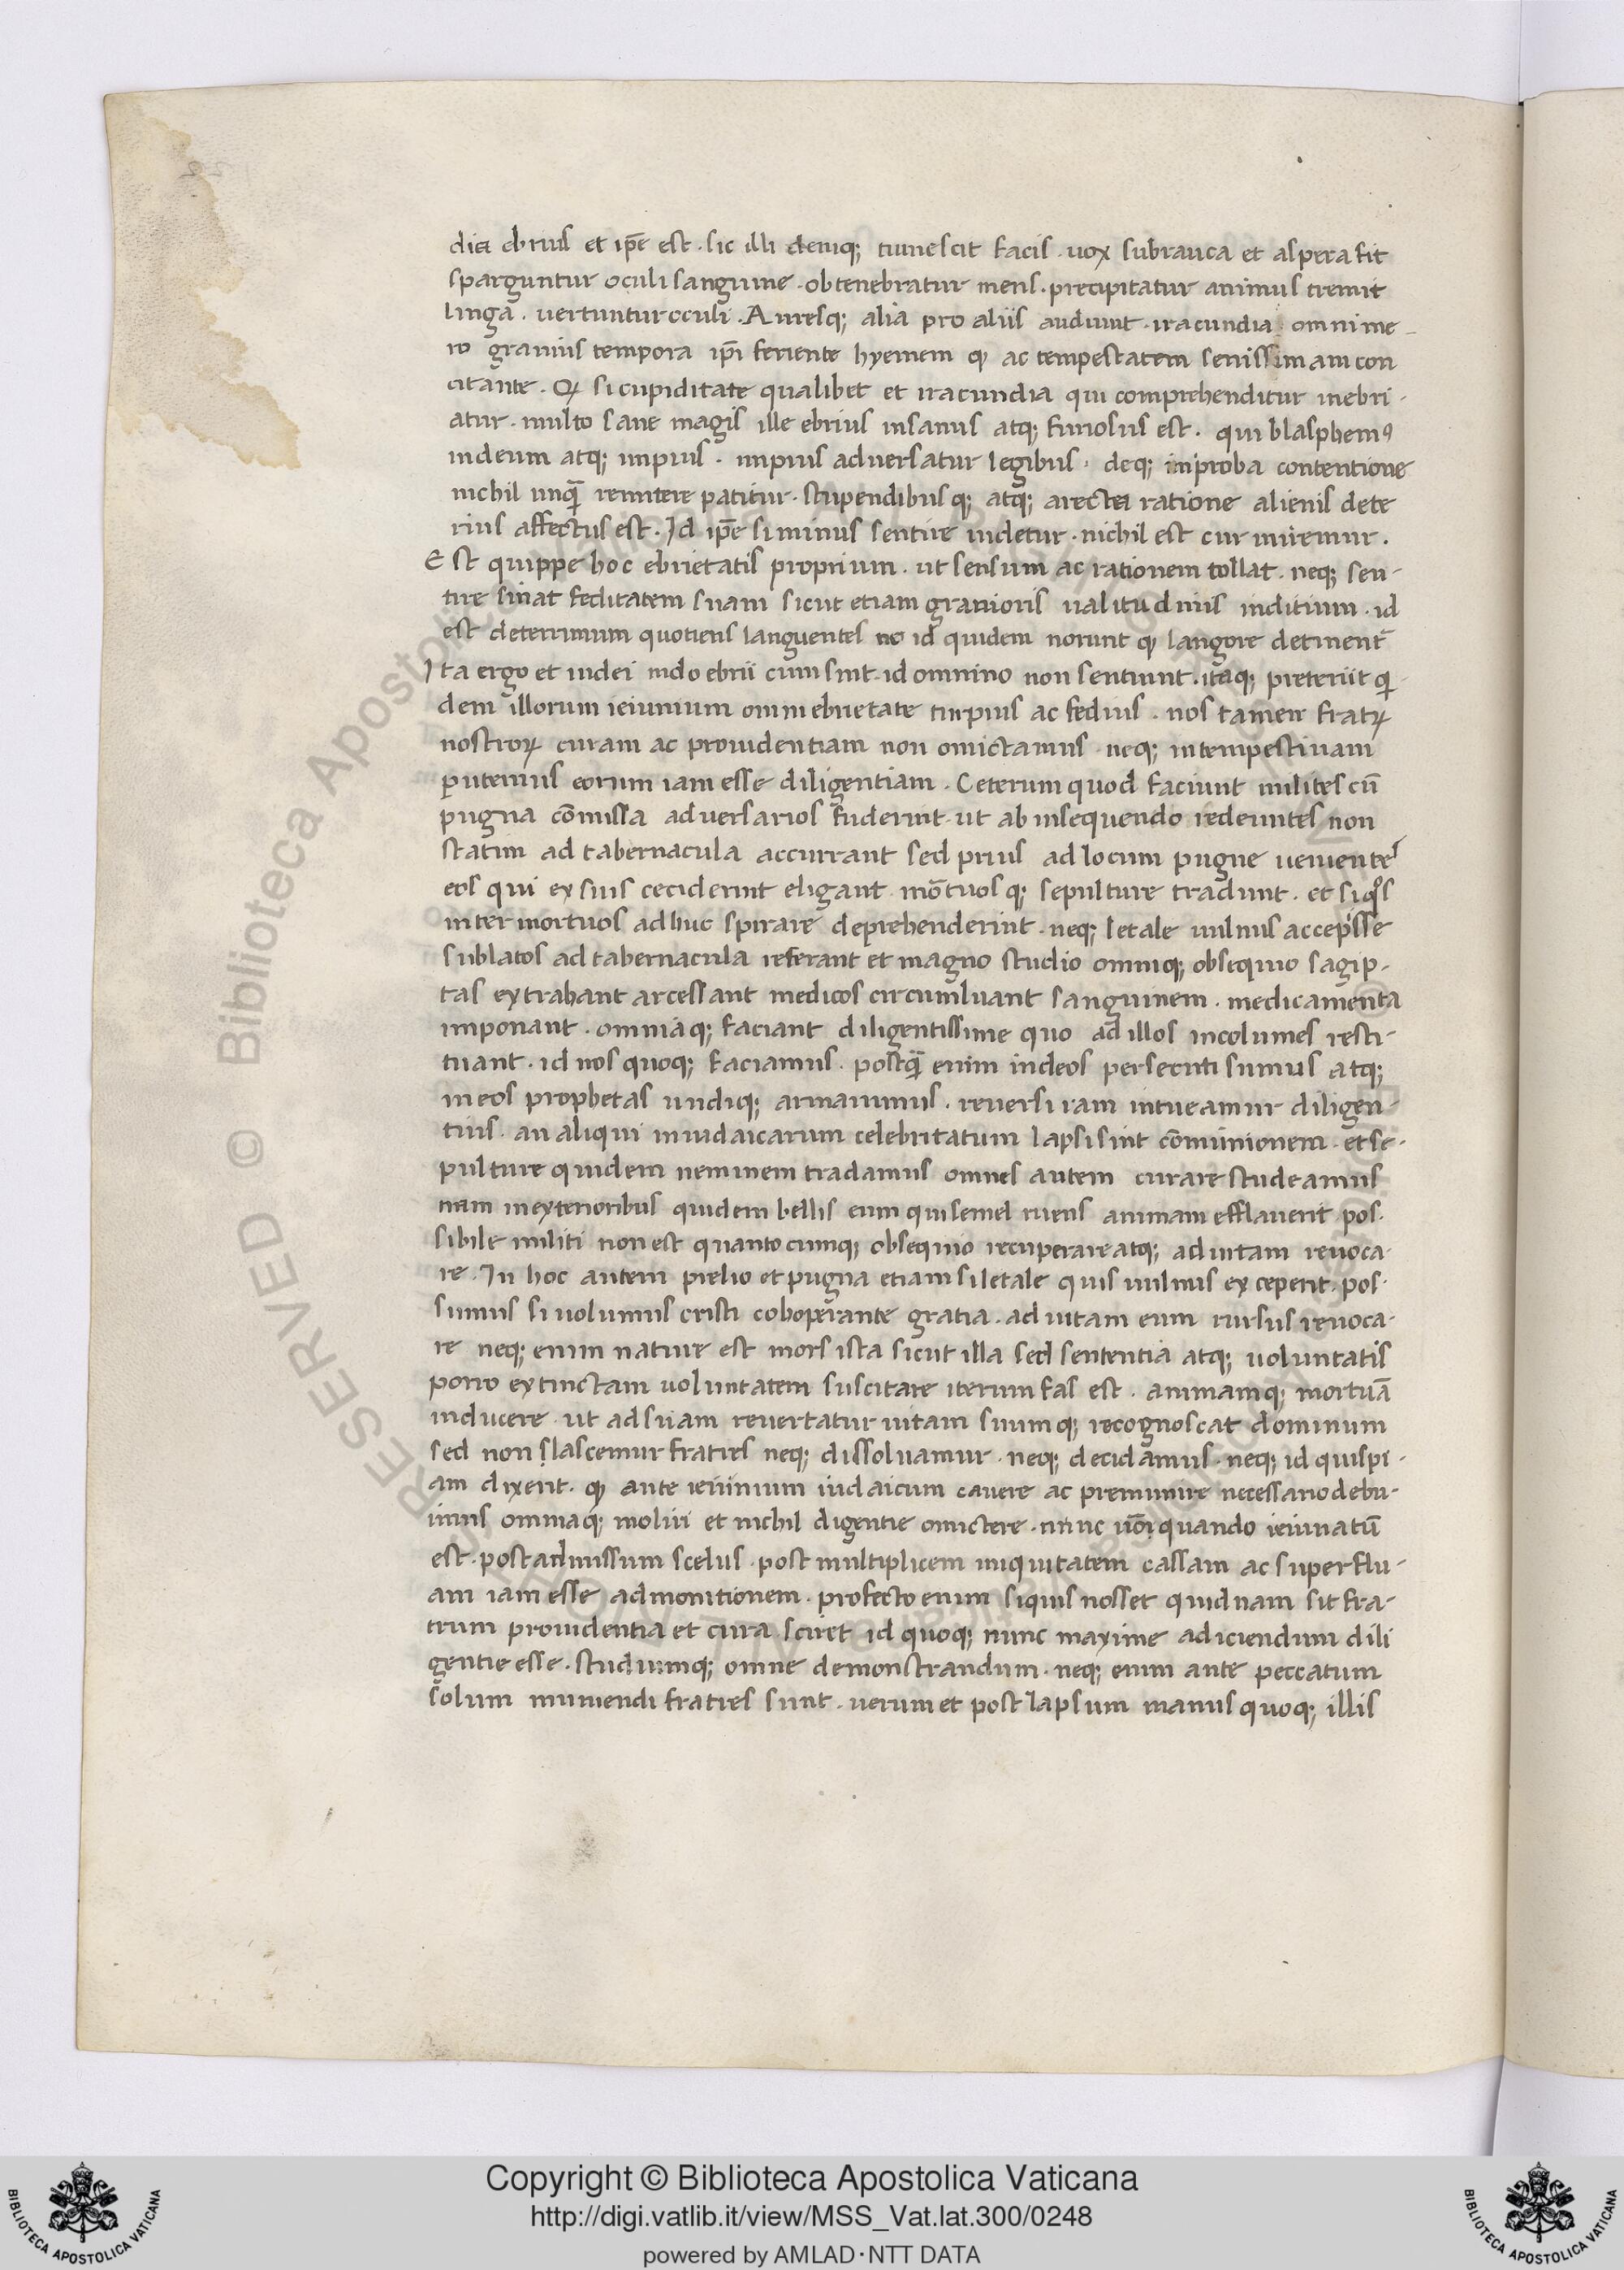 dia ebrius et ip̄e est · sic illi deniq; tumescit facis · uox subrauca et aspera fit
sparguntur oculi sanguine · obtenebratur mens · precipitatur animus tremit
linga · uertuntur oculi · Auresq; alia pro aliis audiunt · iracundia omni me
ro grauius tempora ip̄i feriente hyemem qꝫ ac tempestatem seuissimam con
citante · Qꝫ si cupiditate qualibet et iracundia qui comprehenditur inebri-
atur · multo sane magis ille ebrius insanus atq; furiosus est · qui blasphemꝰ
indeum atq; impius · impius aduersatur legibus · deq; improba contentione
nichil unq̄ remitere patitur · stupendibusq; atq; arecta ratione alienis dete
rius affectus est · Id ip̄e si minus sentire uidetur · nichil est cur miremur .
Est quippe hoc ebrietatis proprium · ut sensum ac rationem tollat · neq; sen-
tire sinat feditatem suam sicut etiam grauioris ualitudinis inditium · id
est deterrimum quotiens languentes ne id quidem norunt qꝫ langore detinent᷑
Ita ergo et iudei modo ebrii cum sint · id omnino non sentiunt · itaq; preteriit q̇
dem illorum ieiunium omni ebrietate turpius ac fedius · nos tamen fratrꝝ
nostrorꝝ curam ac prouidentiam non omictamus · neq; intempestiuam
putemus eorum iam esse diligentiam · Ceterum quod faciunt milites cū
pugna cōmissa aduersarios fuderint · ut ab insequendo redeuntes non
statim ad tabernacula accurrant sed prius ad locum pugne uenientes
eos qui ex suis ceciderint eligant mōtuosq; sepulture tradunt · et siqͦs
inter mortuos adhuc spirare deprehenderint · neq; letale uulnus accepisse
sublatos ad tabernacula referant et magno studio omniq; obsequio sagip-
tas extrahant arcessant medicos circumluant sanguinem · medicamenta
imponant · omniaq; faciant diligentissime quo ad illos incolumes resti-
tuant · id nos quoq; faciamus · postq̄ enim iudeos persecuti sumus atq;
in eos prophetas undiq; armauimus · reuersi iam intueamur diligen-
tius · an aliqui in iudaicarum celebritatum lapsi sint cōmunionem · et se-
pulture quidem neminem tradamus omnes autem curare studeamus
nam in exterioribus quidem bellis eum qui semel ruens animam efflauerit · pos-
sibile militi non est quantocumq; obsequio recuperare atq; ad uitam reuoca-
re · In hoc autem prelio et pugna etiam si letale quis uulnus exceperit · pos-
sumus si uolumus cristi cohoperante gratia · ad uitam eum rursus reuoca-
re neq; enim nature est mors ista sicut illa sed sententia atq; uoluntatis
porro extinctam uoluntatem suscitare iterum fas est · animamq; mortuā
inducere · ut ad suam reuertatur uitam suumq; recognoscat dominum
sed non slascemur fratres neq; dissoluamur · neq; decidamus · neq; id quispi-
am dixerit · qꝫ ante ieiunium iudaicum cauere ac premunire necessario debu-
imus omniaq; moliri et nichil digentie omictere · nunc uō quando ieiunatū
est · post admissum scelus · post multiplicem iniquitatem cassam ac superflu-
am iam esse admonitionem · profecto enim siquis nosset quidnam sit fra-
trum prouidentia et cura sciret id quoq; nunc maxime adiciendum dili
gentie esse · studiumq; omne demonstrandum · neq; enim ante peccatum
solum muniendi fratres sunt · uerum et post lapsum manus quoq; illis
RESERVED © Biblioteca Apostolica Vaticana
Copyright © Biblioteca Apostolica Vaticana
http://digi.vatlib.it/view/MSS_Vat.lat.300/0248
powered by AMLAD·NTT DATA
BIBLIOTECA APOSTOLICA VATICANA
BIBLIOTECA APOSTOLICA VATICANA